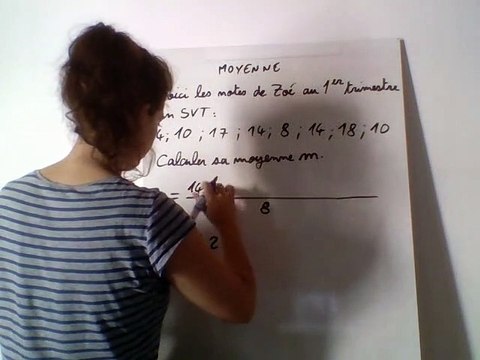 MOYENNE
oici les notes de Zoé au 1er trimestre
en SVT :
4 ; 10 ; 17 ; 14 ; 8 ; 14 ; 18 ; 10
Calculer sa moyenne m.
= 14
8
2